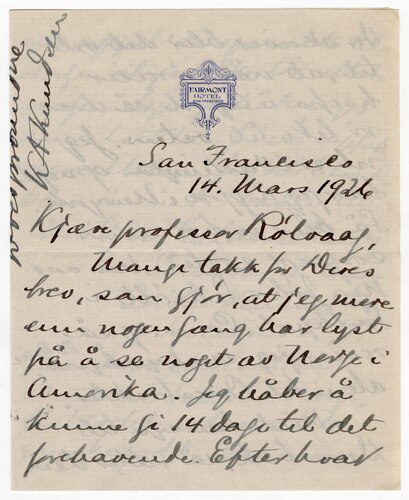 FAIRMONT
HOTEL
SAN FRANCISCO
San Francisco
14. Mars 1926
Kjære professor Rølvaag,
Mange takk for Deres
brev, som gjør, at jeg mere
enn nogen gang har lyst
på å se noget av Norge i
Amerika. Jeg håber å
kunne gi 14 dage til det
forehavende. Efter hvad
KAKnudsen